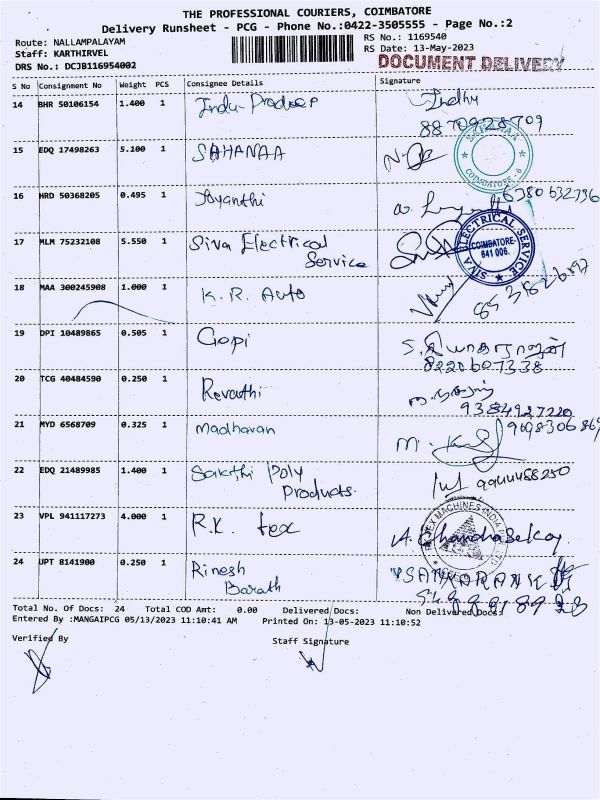 THE PROFESSIONAL COURIERS, COIMBATORE
Delivery Runsheet - PCG - Phone No.:0422-3505555 - Page No.:2
Route: NALLAMPALAYAM RS No.: 1169540
Staff: KARTHIRVEL RS Date: 13-May-2023
DRS No.: DCJB116954002 DOCUMENT DELIVERY
S No Consignment No Weight PCS Consignee Details Signature
14 BHR 50106154 1.400 1 Indu Pradeep Indhu
8870928709
15 EDQ 17498263 5.100 1 SAHANAA
COIMBATORE - 6
16 HRD 50368205 0.495 1 Jayanthi 6380632796
17 MLM 75232108 5.550 1 Siva Electrical
Service
SIVA ELECTRICAL SERVICE
COIMBATORE-
641 006.
18 MAA 300245908 1.000 1 K.R. Auto
19 DPI 10489865 0.505 1 Gopi
8220607338
20 TCG 40484590 0.250 1 Revathi
9384927220
21 MYD 6568709 0.325 1 Madhavan
22 EDQ 21489985 1.400 1 Sakthi Poly
Products. 9944488250
23 VPL 941117273 4.000 1 R.K. tex A. ChandraSekar
24 UPT 8141900 0.250 1 Rinesh
Barath
Total No. Of Docs: 24 Total COD Amt: 0.00 Delivered Docs: Non Delivered Docs:
Entered By :MANGAIPCG 05/13/2023 11:10:41 AM Printed On: 13-05-2023 11:10:52
Verified By Staff Signature